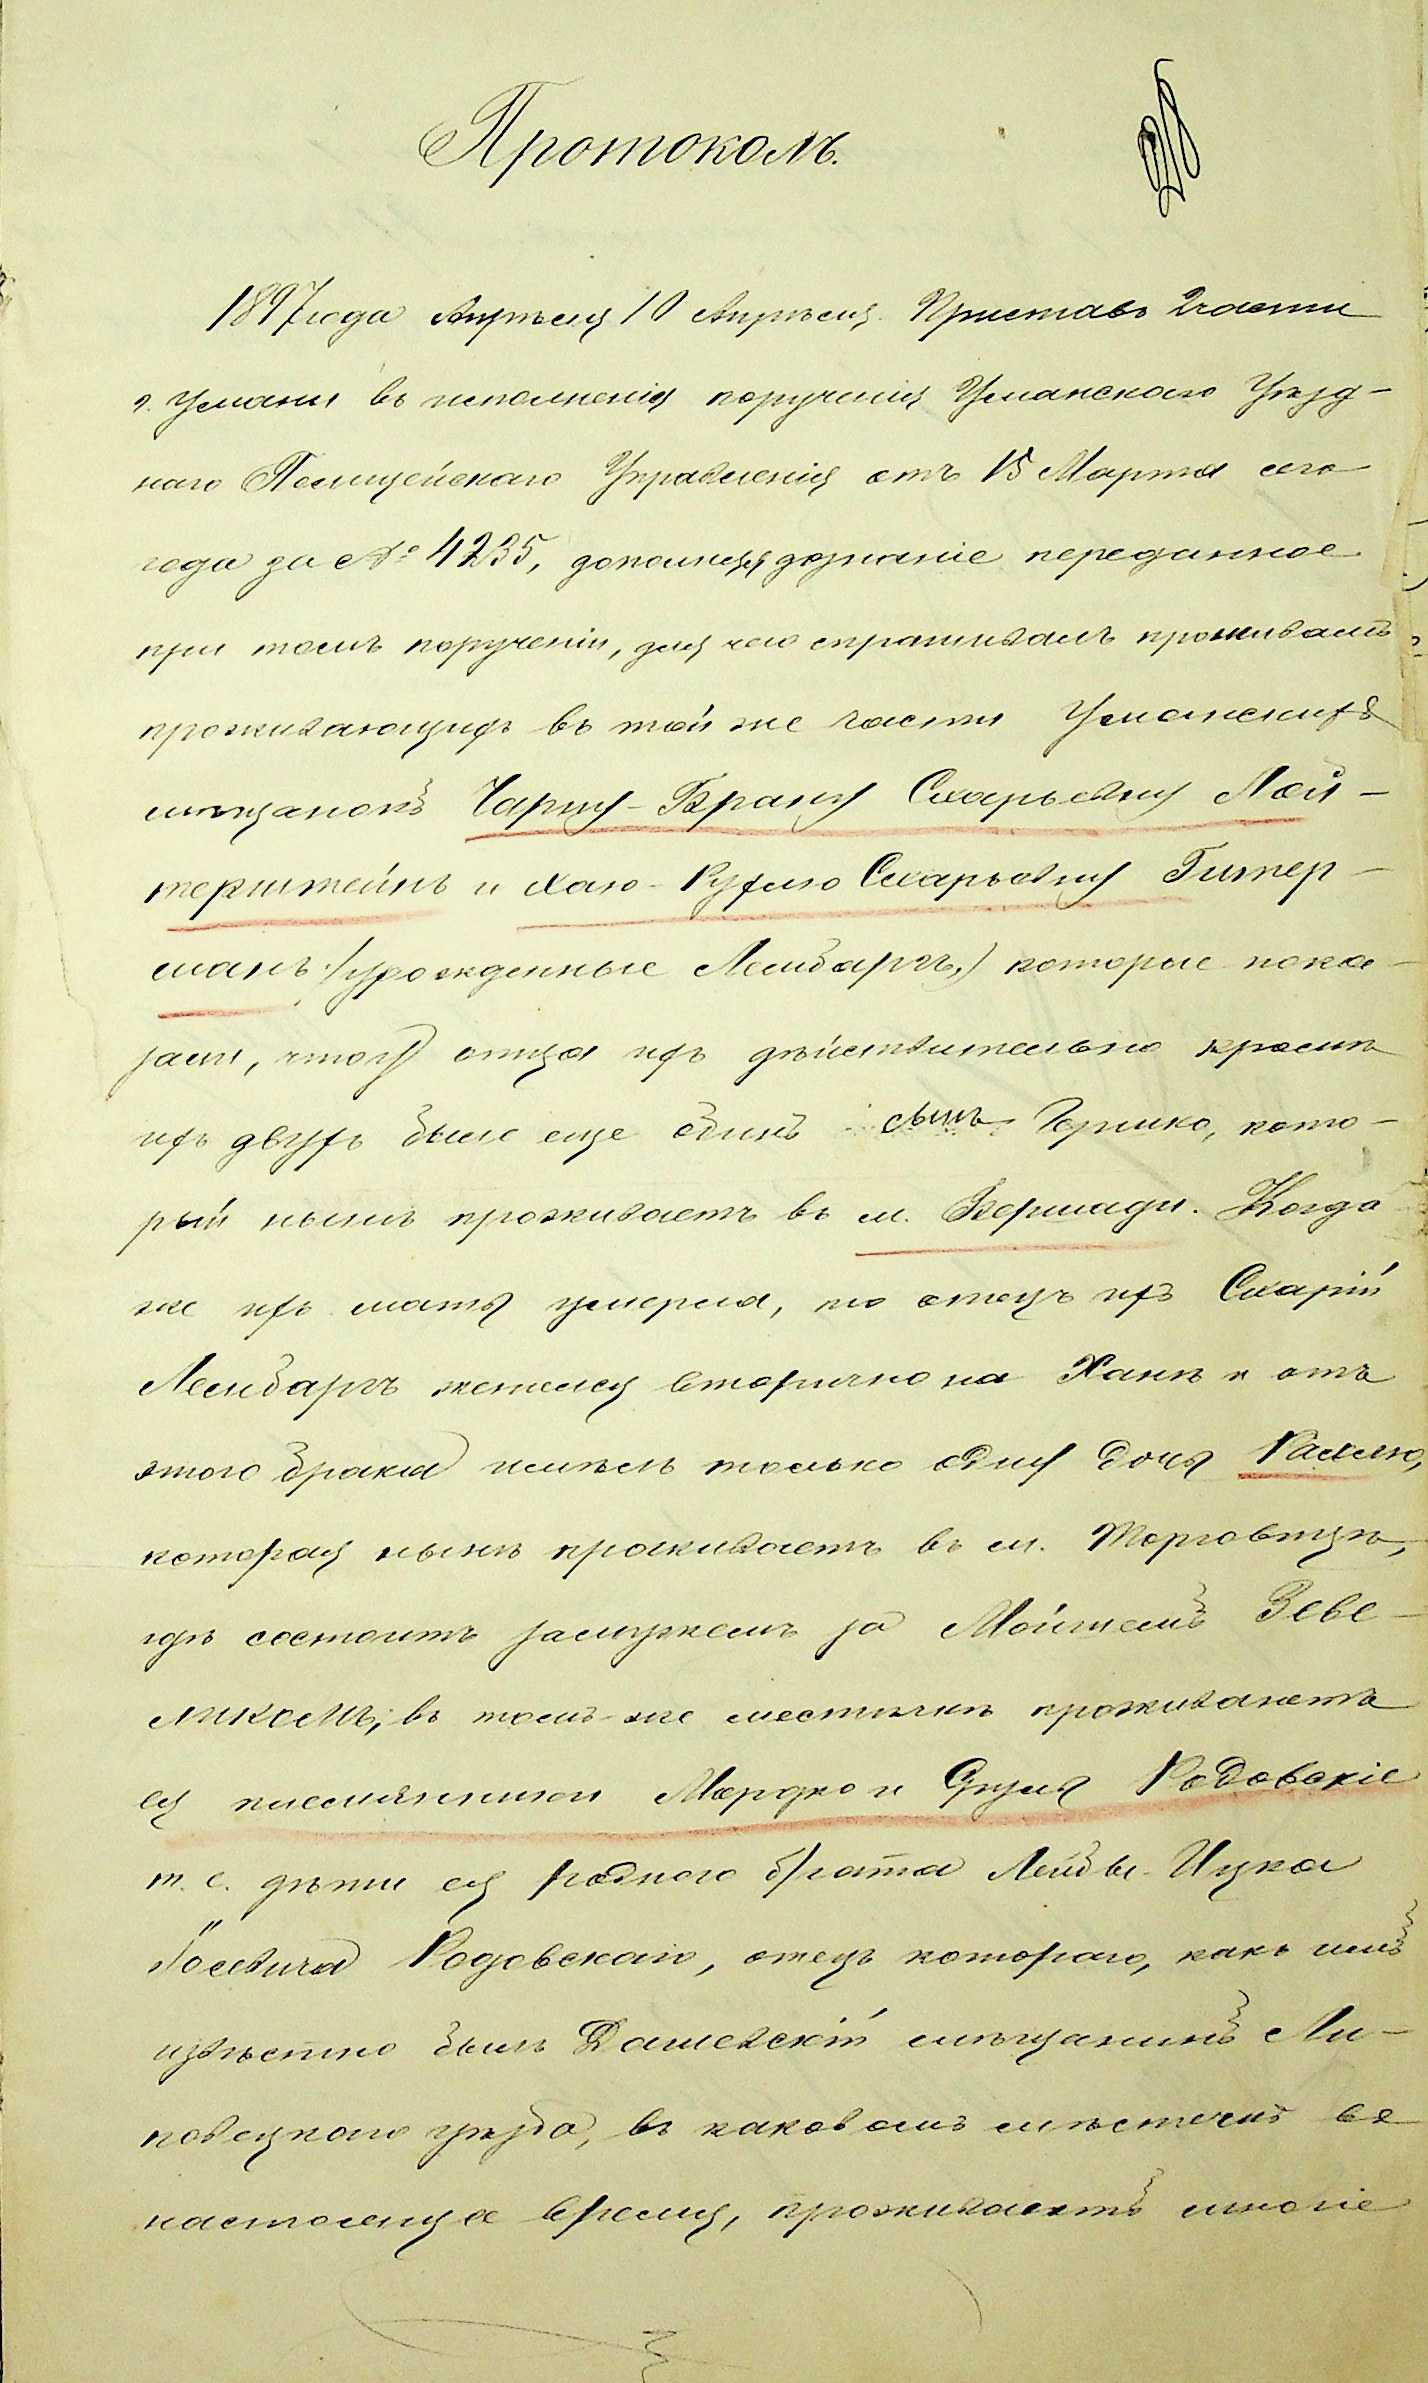 Протоколъ.
1897 года Апрѣля 10 Апрѣля Приставъ 2 части
г. Умани въ исполненія порученія Уманскаго Уѣзд-
наго Полицейскаго Управленія отъ 15 Марта сего
года за № 4235, дополняя дознаніе переданное
при томъ порученіи, для чего спрашивалъ проживалъ
проживающихъ въ той же части Уманскихъ
мѣщанокъ Чарну-Брану Схарьевну Лой-
терштейнъ и Хаю-Рухлю Схарьевну Гитер-
манъ /урожденные Лембаргъ,/ которые пока-
зали, что у отца ихъ дѣйствительно кромѣ
ихъ двухъ былъ еще одинъ сынъ Гершко, кото-
рый нынѣ проживаетъ въ м. Бершади. Когда
же ихъ мать умерла, то отецъ ихъ Схарій
Лембаргъ женился вторично на Ханѣ и отъ
этого брака имѣлъ только одну дочь Рахлю,
которая нынѣ проживаетъ въ м. Торговицѣ,
гдѣ состоитъ замужемъ за Мойшемъ Зеве-
ликомъ; въ томъ-же местѣчкѣ проживаютъ
ея племянники Мордко и Сруль Родовскіе
т. е. дѣти ея родного брата Лейбы-Ицка
Іосевича Родовскаго, отецъ котораго, какъ имъ
извѣстно былъ Дашевскій мѣщанинъ Ли-
повецкаго уѣзда, въ каковомъ мѣстечкѣ въ
настоящее время, проживаетъ многіе